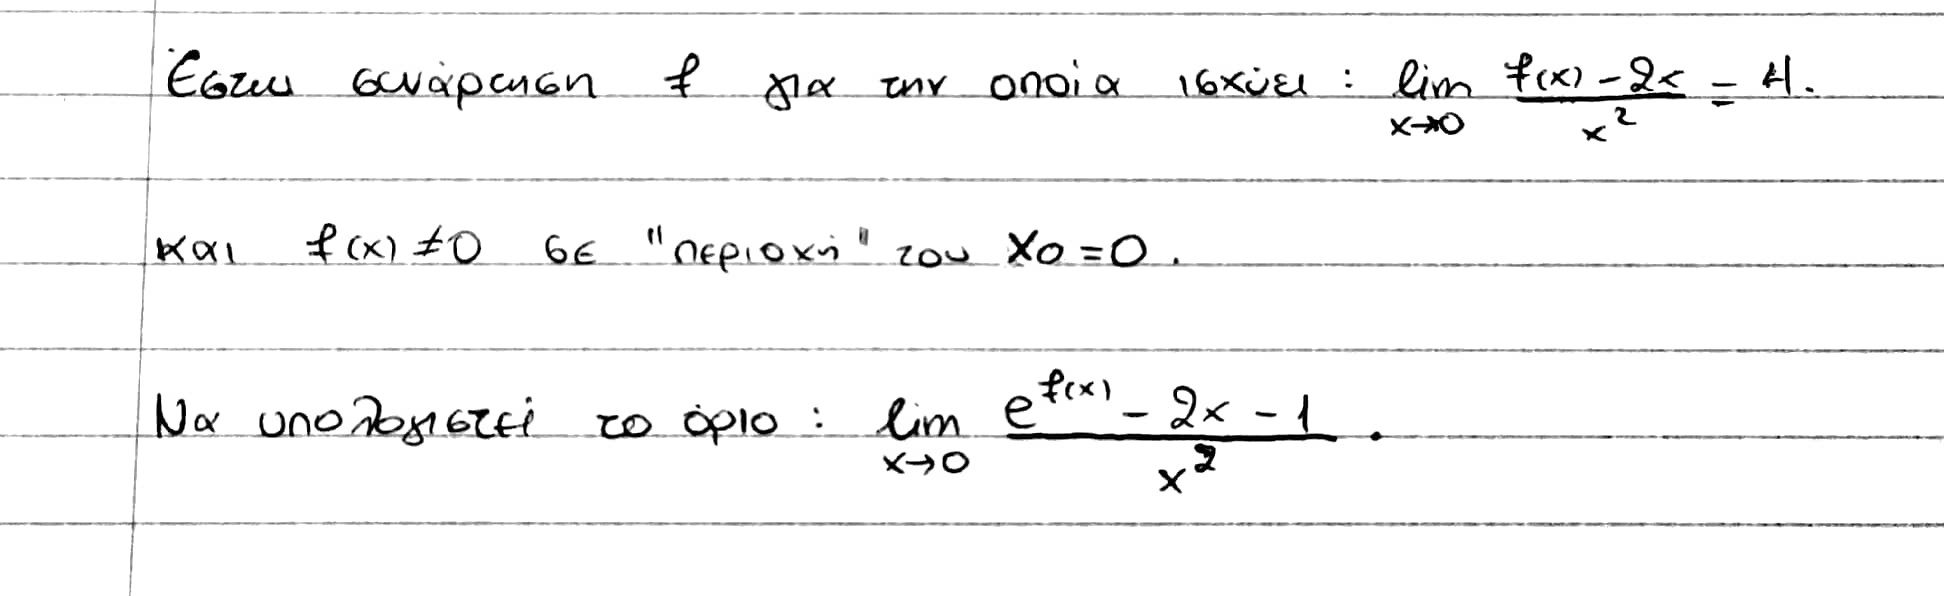 Έστω συνάρτηση f για την οποία ισχύει : lim_{x→0} \frac{f(x) - 2x}{x^2} = 4.
και f(x) ≠ 0 σε "περιοχή" του x_0 = 0.
Να υπολογιστεί το όριο : lim_{x→0} \frac{e^{f(x)} - 2x - 1}{x^2}.